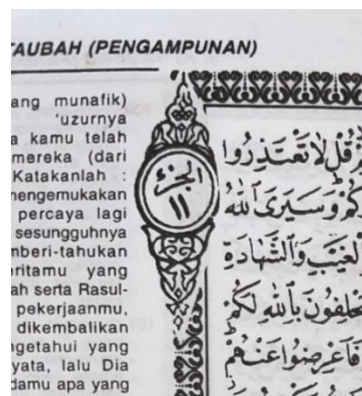 TAUBAH (PENGAMPUNAN)
ang munafik)
'uzurnya
a kamu telah
mereka (dari
Katakanlah :
mengemukakan
percaya lagi
sesungguhnya
mberi-tahukan
eritamu yang
ah serta Rasul-
pekerjaanmu,
dikembalikan
ngetahui yang
yata, lalu Dia
damu apa yang
الجزء
١١
قُل لَا تَعْتَذِرُوا
كُمْ وَسَيَرَى اللَّهُ
الْغَيْبِ وَالشَّهَادَةِ
يَحْلِفُونَ بِاللَّهِ لَكُمْ
فَأَعْرِضُوا عَنْهُمْ